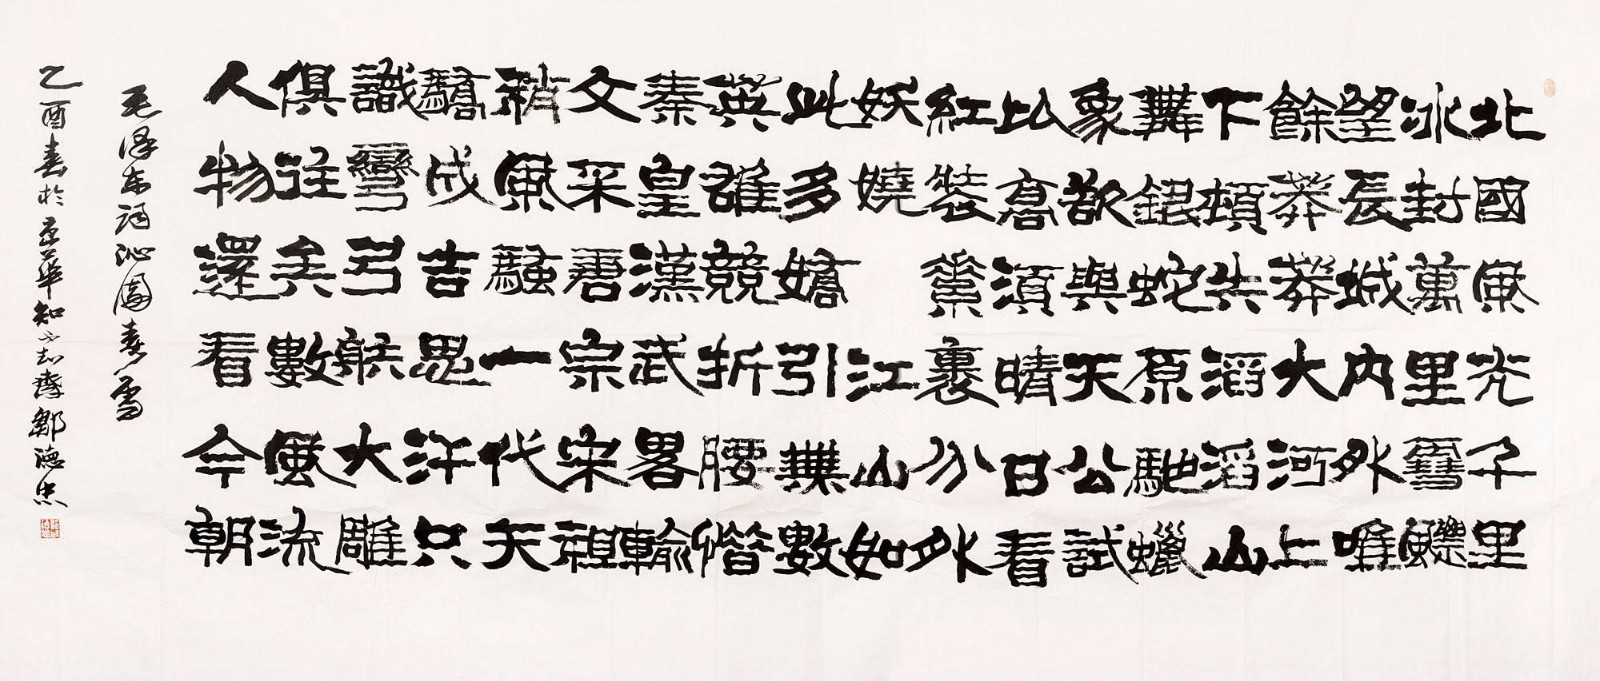 北國風光千里
冰封萬里雪飄
望長城內外唯
餘莽莽大河上
下頓失滔滔山
舞銀蛇原馳蠟
象欲與天公試
比高須晴日看
紅裝素裹分外
妖嬈 江山如
此多嬌引無數
英雄競折腰惜
秦皇漢武畧輸
文采唐宗宋祖
稍風騷一代天
驕成吉思汗只
識彎弓射大雕
俱往矣數風流
人物還看今朝
毛泽东词沁園春雪
乙酉春於京華知不知齋鄒德忠